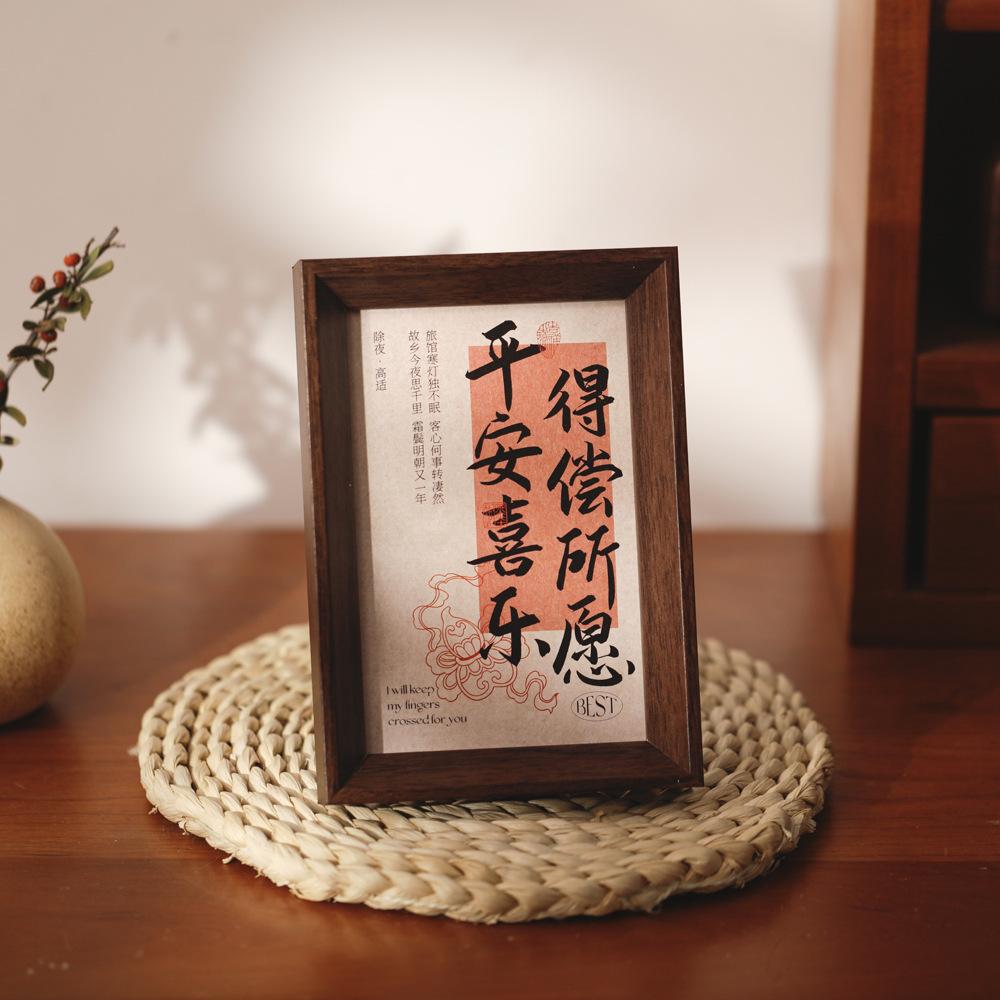 得偿所愿
平安喜乐
旅馆寒灯独不眠 客心何事转凄然
故乡今夜思千里 霜鬓明朝又一年
除夜·高适
I will keep
my fingers
crossed for you
BEST